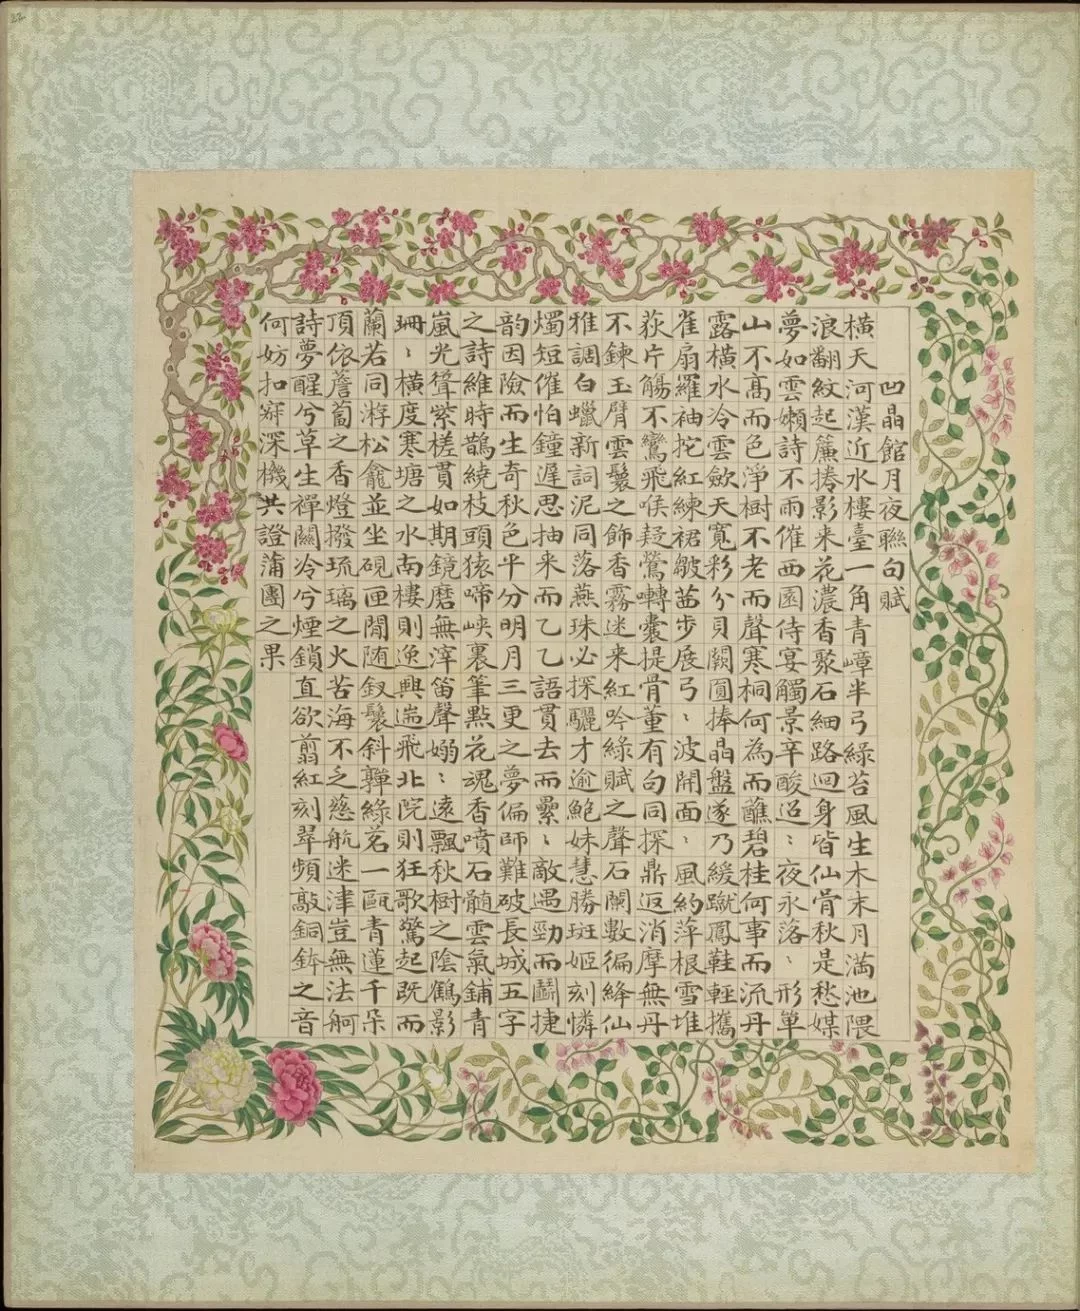 22
凹晶館月夜聯句賦
橫天河漢近水樓臺一角青嶂半弓綠苔風生木末月滿池隈
浪翻紋起簾捲影来花濃香聚石細路迴身皆仙骨秋是愁媒
夢如雲嬾詩不雨催西園侍宴觸景辛酸迢〻夜永落〻形單
山不高而色淨樹不老而聲寒桐何為而蘸碧桂何事而流丹
露橫水冷雲歛天寬彩分貝闕圓捧晶盤遂乃緩蹴鳳鞋輕攜
雀扇羅袖拕紅練裙皺茁步屧弓〻波開面〻風約萍根雪堆
荻片觴不鸞飛喉疑鶯囀裳提骨董有句同探鼎返消摩無丹
不鍊玉臂雲鬟之飾香霧迷来紅吟綠賦之聲石闌數徧絳仙
雅調白蠟新詞泥同落燕珠必探驪才逾鮑妹慧勝班姬刻憐
燭短催怕鐘遲思抽来而乙乙語貫去而纍〻敵遇勁而鬭捷
韵因險而生奇秋色平分明月三更之夢偏師難破長城五字
之詩維時鵲繞枝頭猿啼峽裏筆點花魂香噴石髓雲氣鋪青
嵐光聳紫槎貫如期鏡磨無滓笛聲嫋〻遠飄秋樹之陰鶴影
珊〻橫度寒塘之水南樓則逸興遄飛北院則狂歌驚起既而
蘭若同游松龕並坐硯匣閒随釵鬟斜嚲綠茗一甌青蓮千朵
頂依簷蔔之香燈撥琉璃之火苦海不之慈航迷津豈無法舸
詩夢醒兮草生禪關冷兮煙鎖直欲翦紅刻翠頻敲銅鉢之音
何妨扣寂深機共證蒲團之果